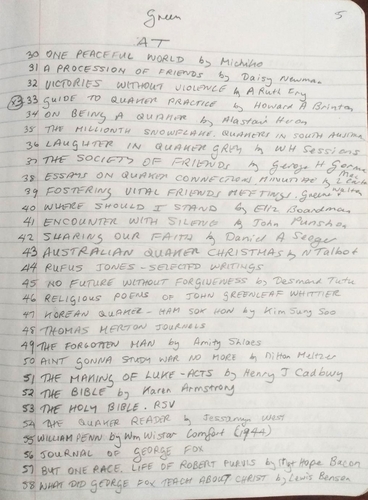 Green
5
AT
30 ONE PEACEFUL WORLD by Michiko
31 A PROCESSION OF FRIENDS by Daisy Newman
32 VICTORIES WITHOUT VIOLENCE by A Ruth Fry
33 GUIDE TO QUAKER PRACTICE by Howard H Brinton
34 ON BEING A QUAKER by Alastair Heron
35 THE MILLIONTH SNOWFLAKE. QUAKERS IN SOUTH
36 LAUGHTER IN QUAKER GREY by WH Sessions
37 THE SOCIETY OF FRIENDS by George H Gorman
38 ESSAYS ON QUAKER CONNECTIONS
39 FOSTERING VITAL FRIENDS MEETINGS.
40 WHERE SHOULD I STAND by Eliz Boardman
41 ENCOUNTER WITH SILENCE by John Punshon
42 SHARING OUR FAITH by Daniel A Seeger
43 AUSTRALIAN QUAKER CHRISTMAS by N Talbot
44 RUFUS JONES - SELECTED WRITINGS
45 NO FUTURE WITHOUT FORGIVENESS by Desmond Tutu
46 RELIGIOUS POEMS OF JOHN GREENLEAF WHITTIER
47 KOREAN QUAKER - HAM SOK HON by Kim Sung Soo
48 THOMAS MERTON JOURNALS
49 THE FORGOTTEN MAN by Amity Shlaes
50 AINT GONNA STUDY WAR NO MORE by Milton Meltzer
51 THE MAKING OF LUKE-ACTS by Henry J Cadbury
52 THE BIBLE by Karen Armstrong
53 THE HOLY BIBLE. RSV
54 THE QUAKER READER by Jessamyn West
55 WILLIAM PENN by Wm Wistar Comfort (1944)
56 JOURNAL OF GEORGE FOX
57 BUT ONE RACE. LIFE OF ROBERT PURVIS by Mgt Hope Bacon
58 WHAT DID GEORGE FOX TEACH ABOUT CHRIST by Lewis Benson